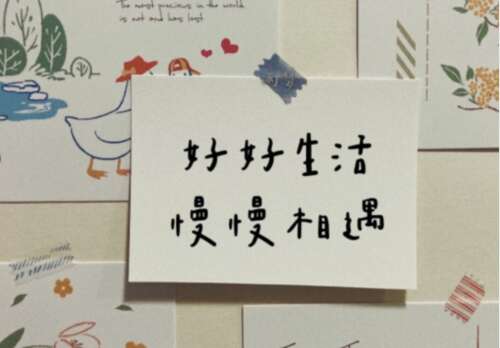 The most precious in the world
is not and has lost
好好生活
慢慢相遇